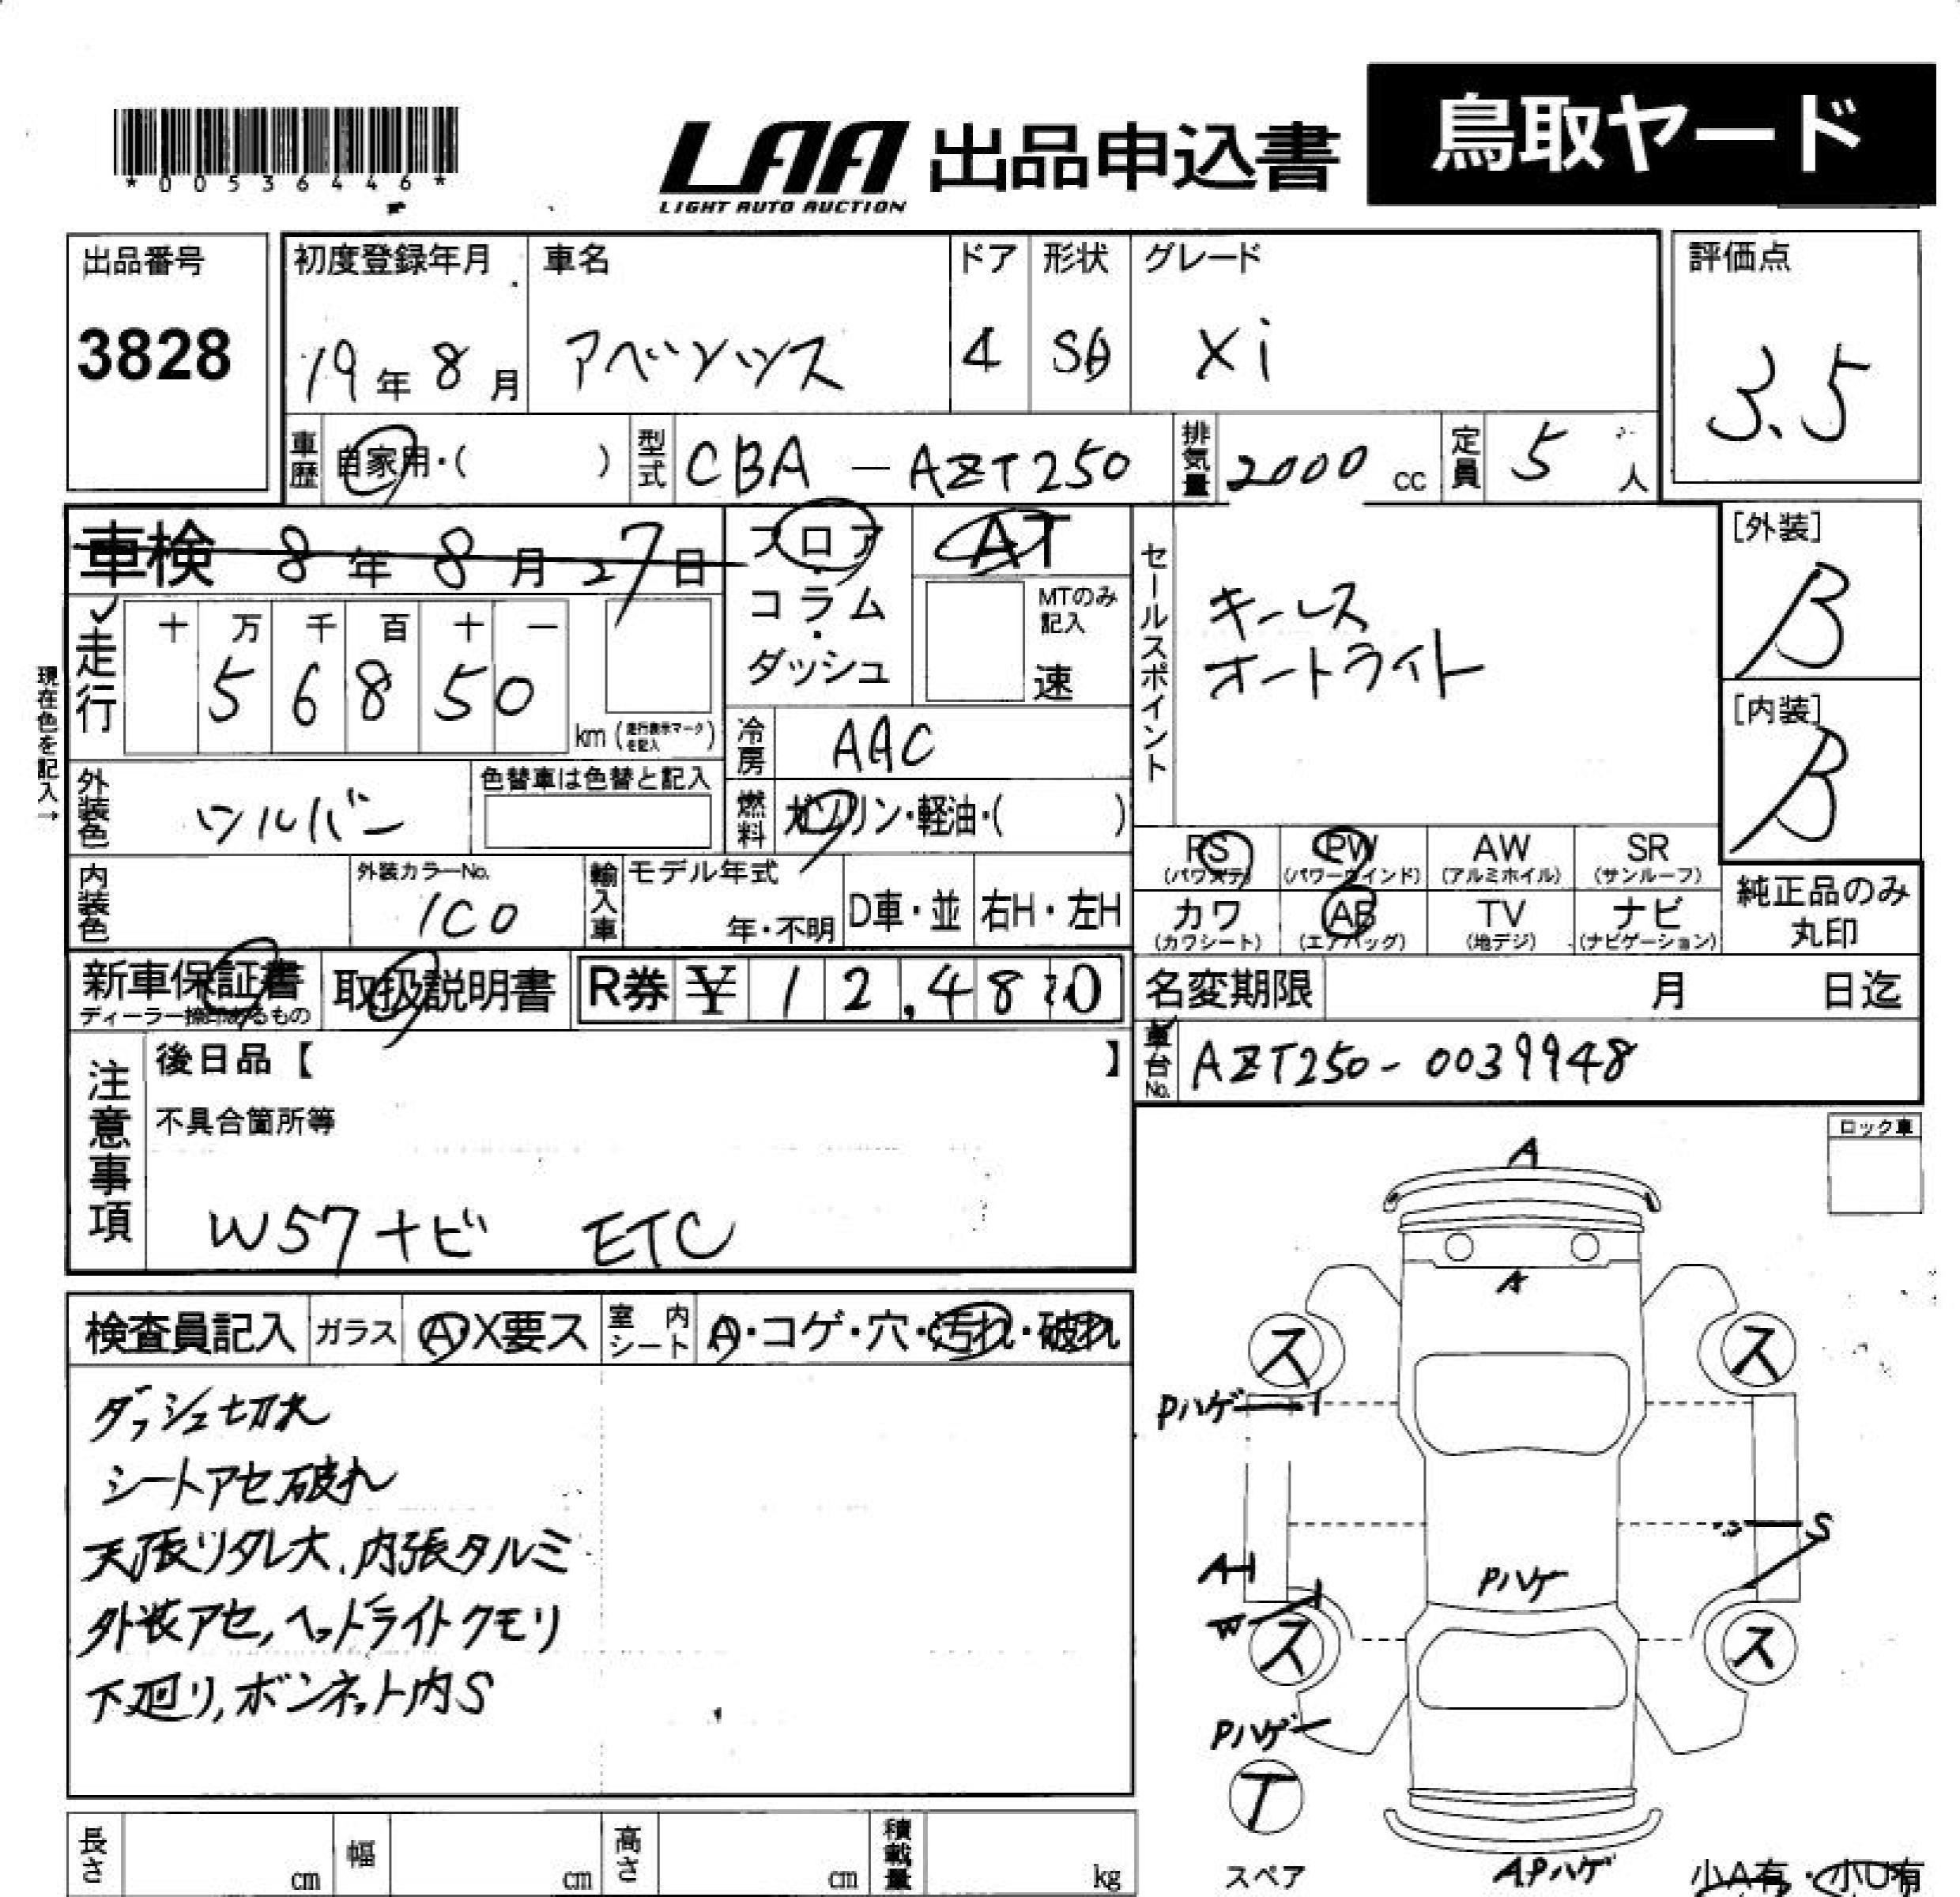 *00536446*
LAA 出品申込書 鳥取ヤード
LIGHT AUTO AUCTION
出品番号 初度登録年月 車名 ドア 形状 グレード 評価点
3828 19年8月 アベンソス 4 SD Xi 3.5
車歴 自家用・( ) 型式 CBA-AZT250 排気量 2000 cc 定員 5 人
車検 8年8月27日 フロア・コラム・ダッシュ AT
MTのみ記入 速
セールスポイント
キーレス
オートライト
[外装]
B
[内装]
B
現在色を記入→
走行 十 万 千 百 十 一
5 6 8 5 0 km (走行表示マークを記入)
冷房 AAC
外装色 シルバー 色替車は色替と記入
燃料 ガソリン・軽油・( )
内装色 外装カラーNo. 1C0 輸入車 モデル年式 年・不明 D車・並 右H・左H
PS (パワステ) PW (パワーウインド) AW (アルミホイル) SR (サンルーフ)
カワ (カワシート) AB (エアバッグ) TV (地デジ) ナビ (ナビゲーション)
純正品のみ丸印
新車保証書 ディーラー捺印あるもの 取扱説明書 R券 ¥ 12,480
名変期限 月 日迄
車台No. AZT250-0039948
注意事項
後日品【 】
不具合箇所等
W57ナビ ETC
ロック車
検査員記入 ガラス A X要ス 室内シート A・コゲ・穴・汚れ・破れ
ダッシュ切れ
シートアセ破れ
天張りタレ大、内張タルミ
外装アセ,ヘッドライトクモリ
下廻り,ボンネット内S
A
A
ス ス
Pハゲ
S
A
Pハゲ
W
ス ス
Pハゲ
T
スペア
APハゲ
小A有・小U有
長さ cm 幅 cm 高さ cm 積載量 kg